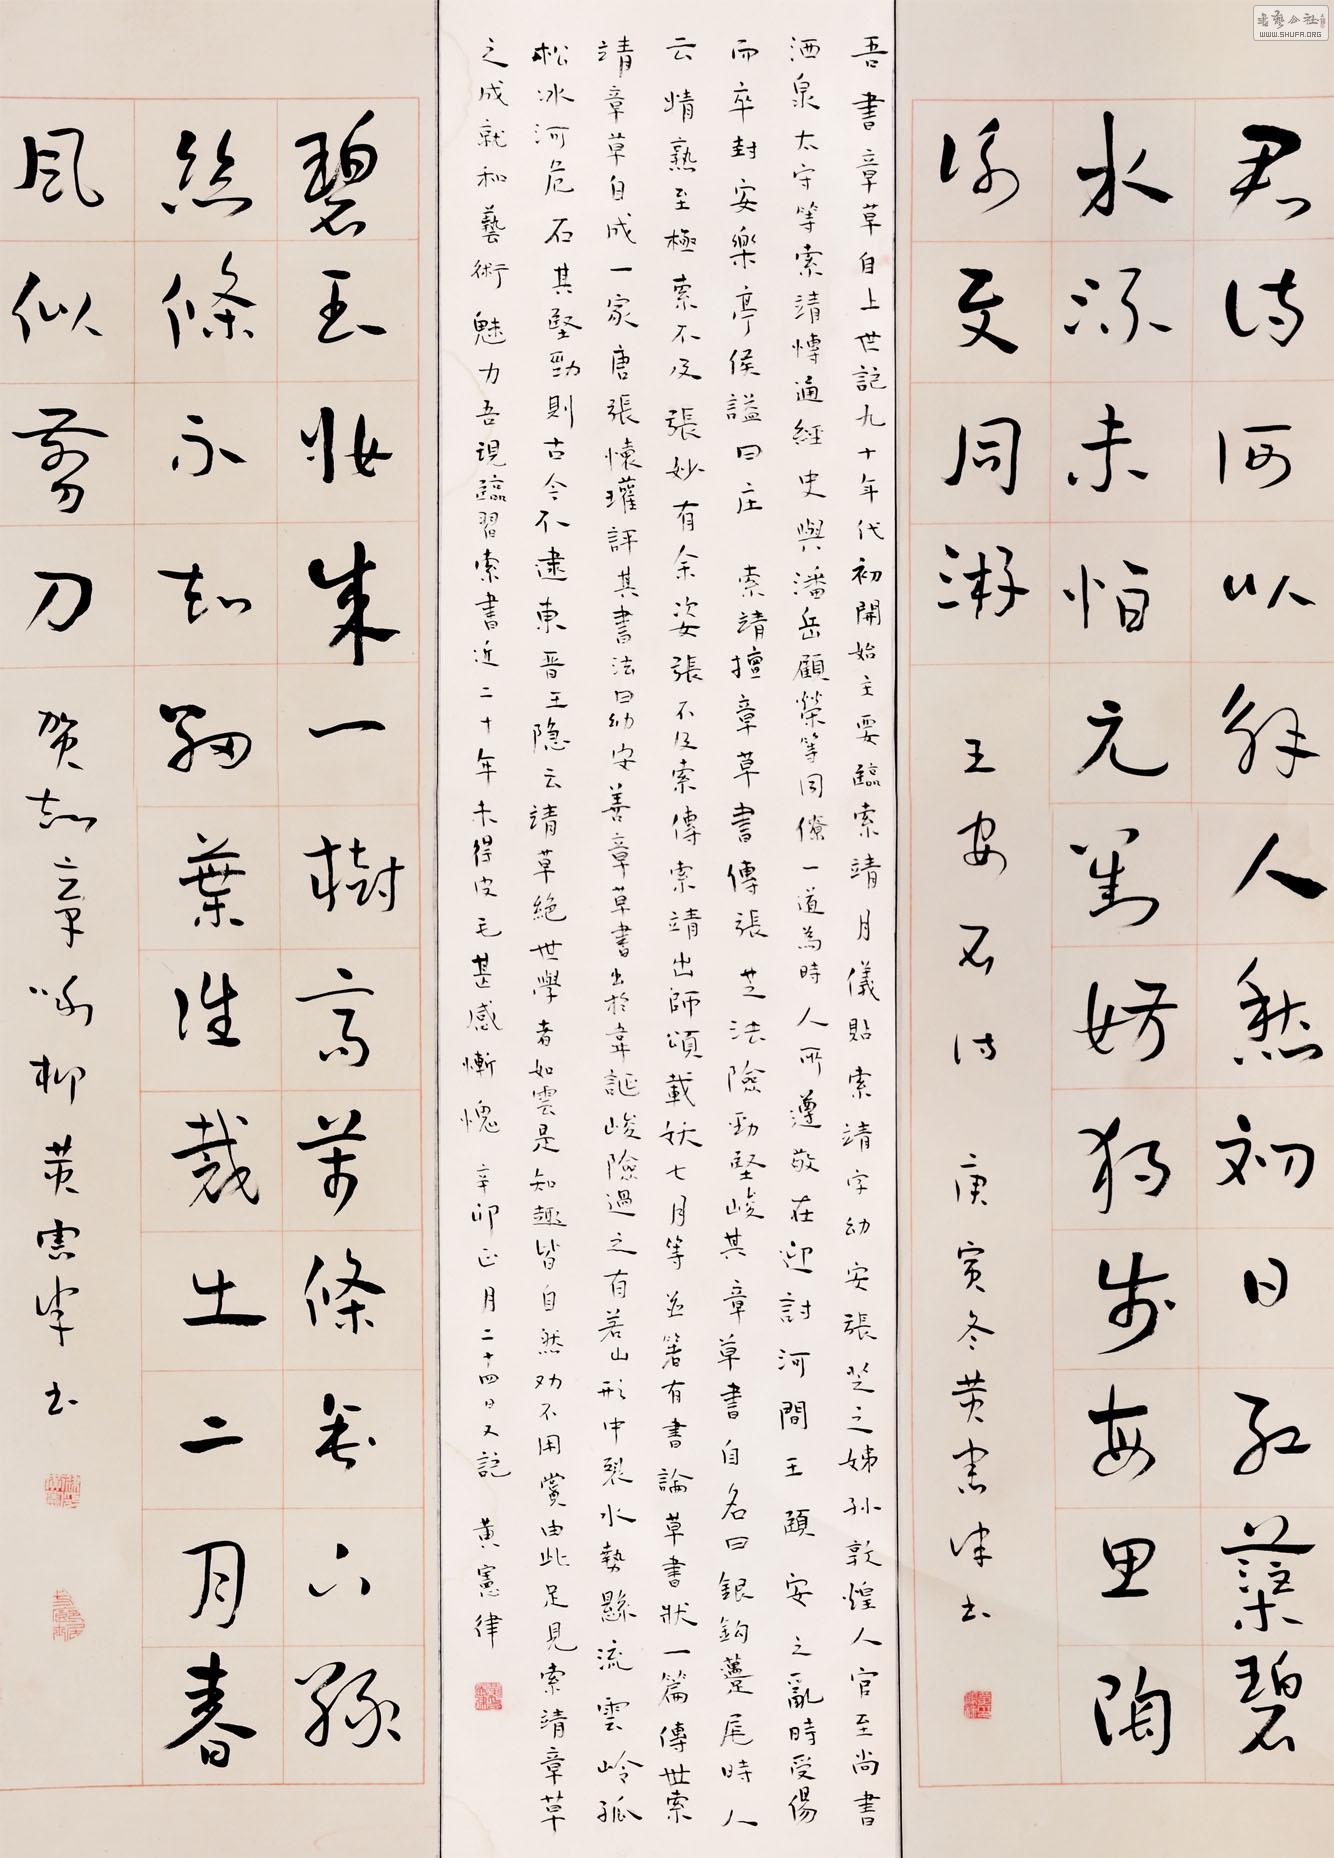 君詩何以解人愁初日紅蕖碧
水流未怕元劉妨獨步每思陶
謝與同游 王安石詩 庚寅冬黃憲律書
吾書章草自上世記九十年代初開始主要臨索靖月儀貼索靖字幼安張芝之姊孙敦煌人官至尚書
酒泉太守等索靖博通經史與潘岳顧榮等同僚一道為時人所遵敬在迎討河間王顒安之亂時受傷
而卒封安樂亭侯謚曰庄 索靖擅章草書傳張芝法險勁堅峻其章草書自名曰銀鈎蠆尾時人
云情熟至極索不及張妙有余姿張不及索傳索靖出師頌載妖七月等並著有書論草書狀一篇傳世索
靖章草自成一家唐張懷瓘評其書法曰幼安善章草書出於韋誕峻險過之有若山形中裂水勢懸流雲岭孤
松冰河危石其堅勁則古今不逮東晋王隐云靖草絕世學者如雲是知趣皆自然劝不用賞由此足見索靖章草
之成就和藝術魅力吾現臨習索書近二十年未得皮毛甚感慚愧 辛卯正月二十四日又記 黃憲律
碧玉妝成一樹高萬條垂下綠
絲條不知細葉誰裁出二月春
風似剪刀 賀知章詠柳黃憲律書
WWW.SHUFA.ORG